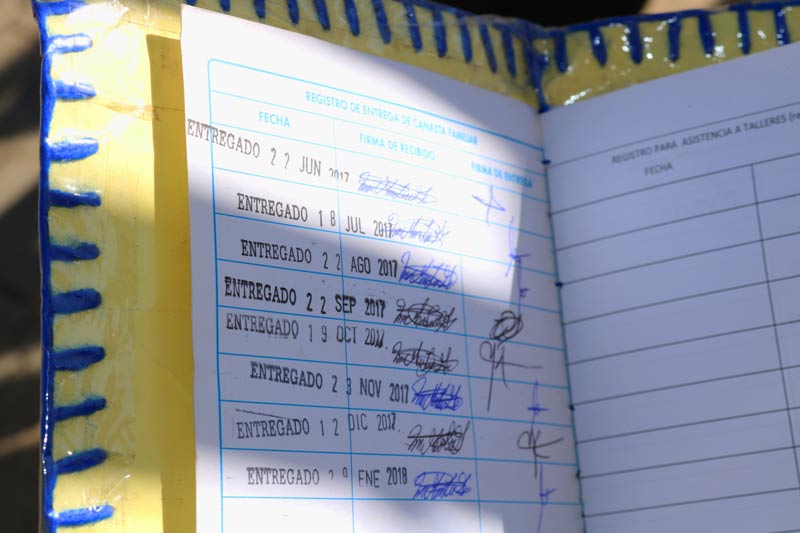 REGISTRO DE ENTREGA DE CANASTA FAMILIAR
FECHA FIRMA DE RECIBIDO FIRMA DE ENTREGA
ENTREGADO 22 JUN 2017
ENTREGADO 18 JUL 2017
ENTREGADO 22 AGO 2017
ENTREGADO 22 SEP 2017
ENTREGADO 19 OCT 2017
ENTREGADO 23 NOV 2017
ENTREGADO 12 DIC 2017
ENTREGADO 29 ENE 2018
REGISTRO PARA ASISTENCIA A TALLERES (re
FECHA